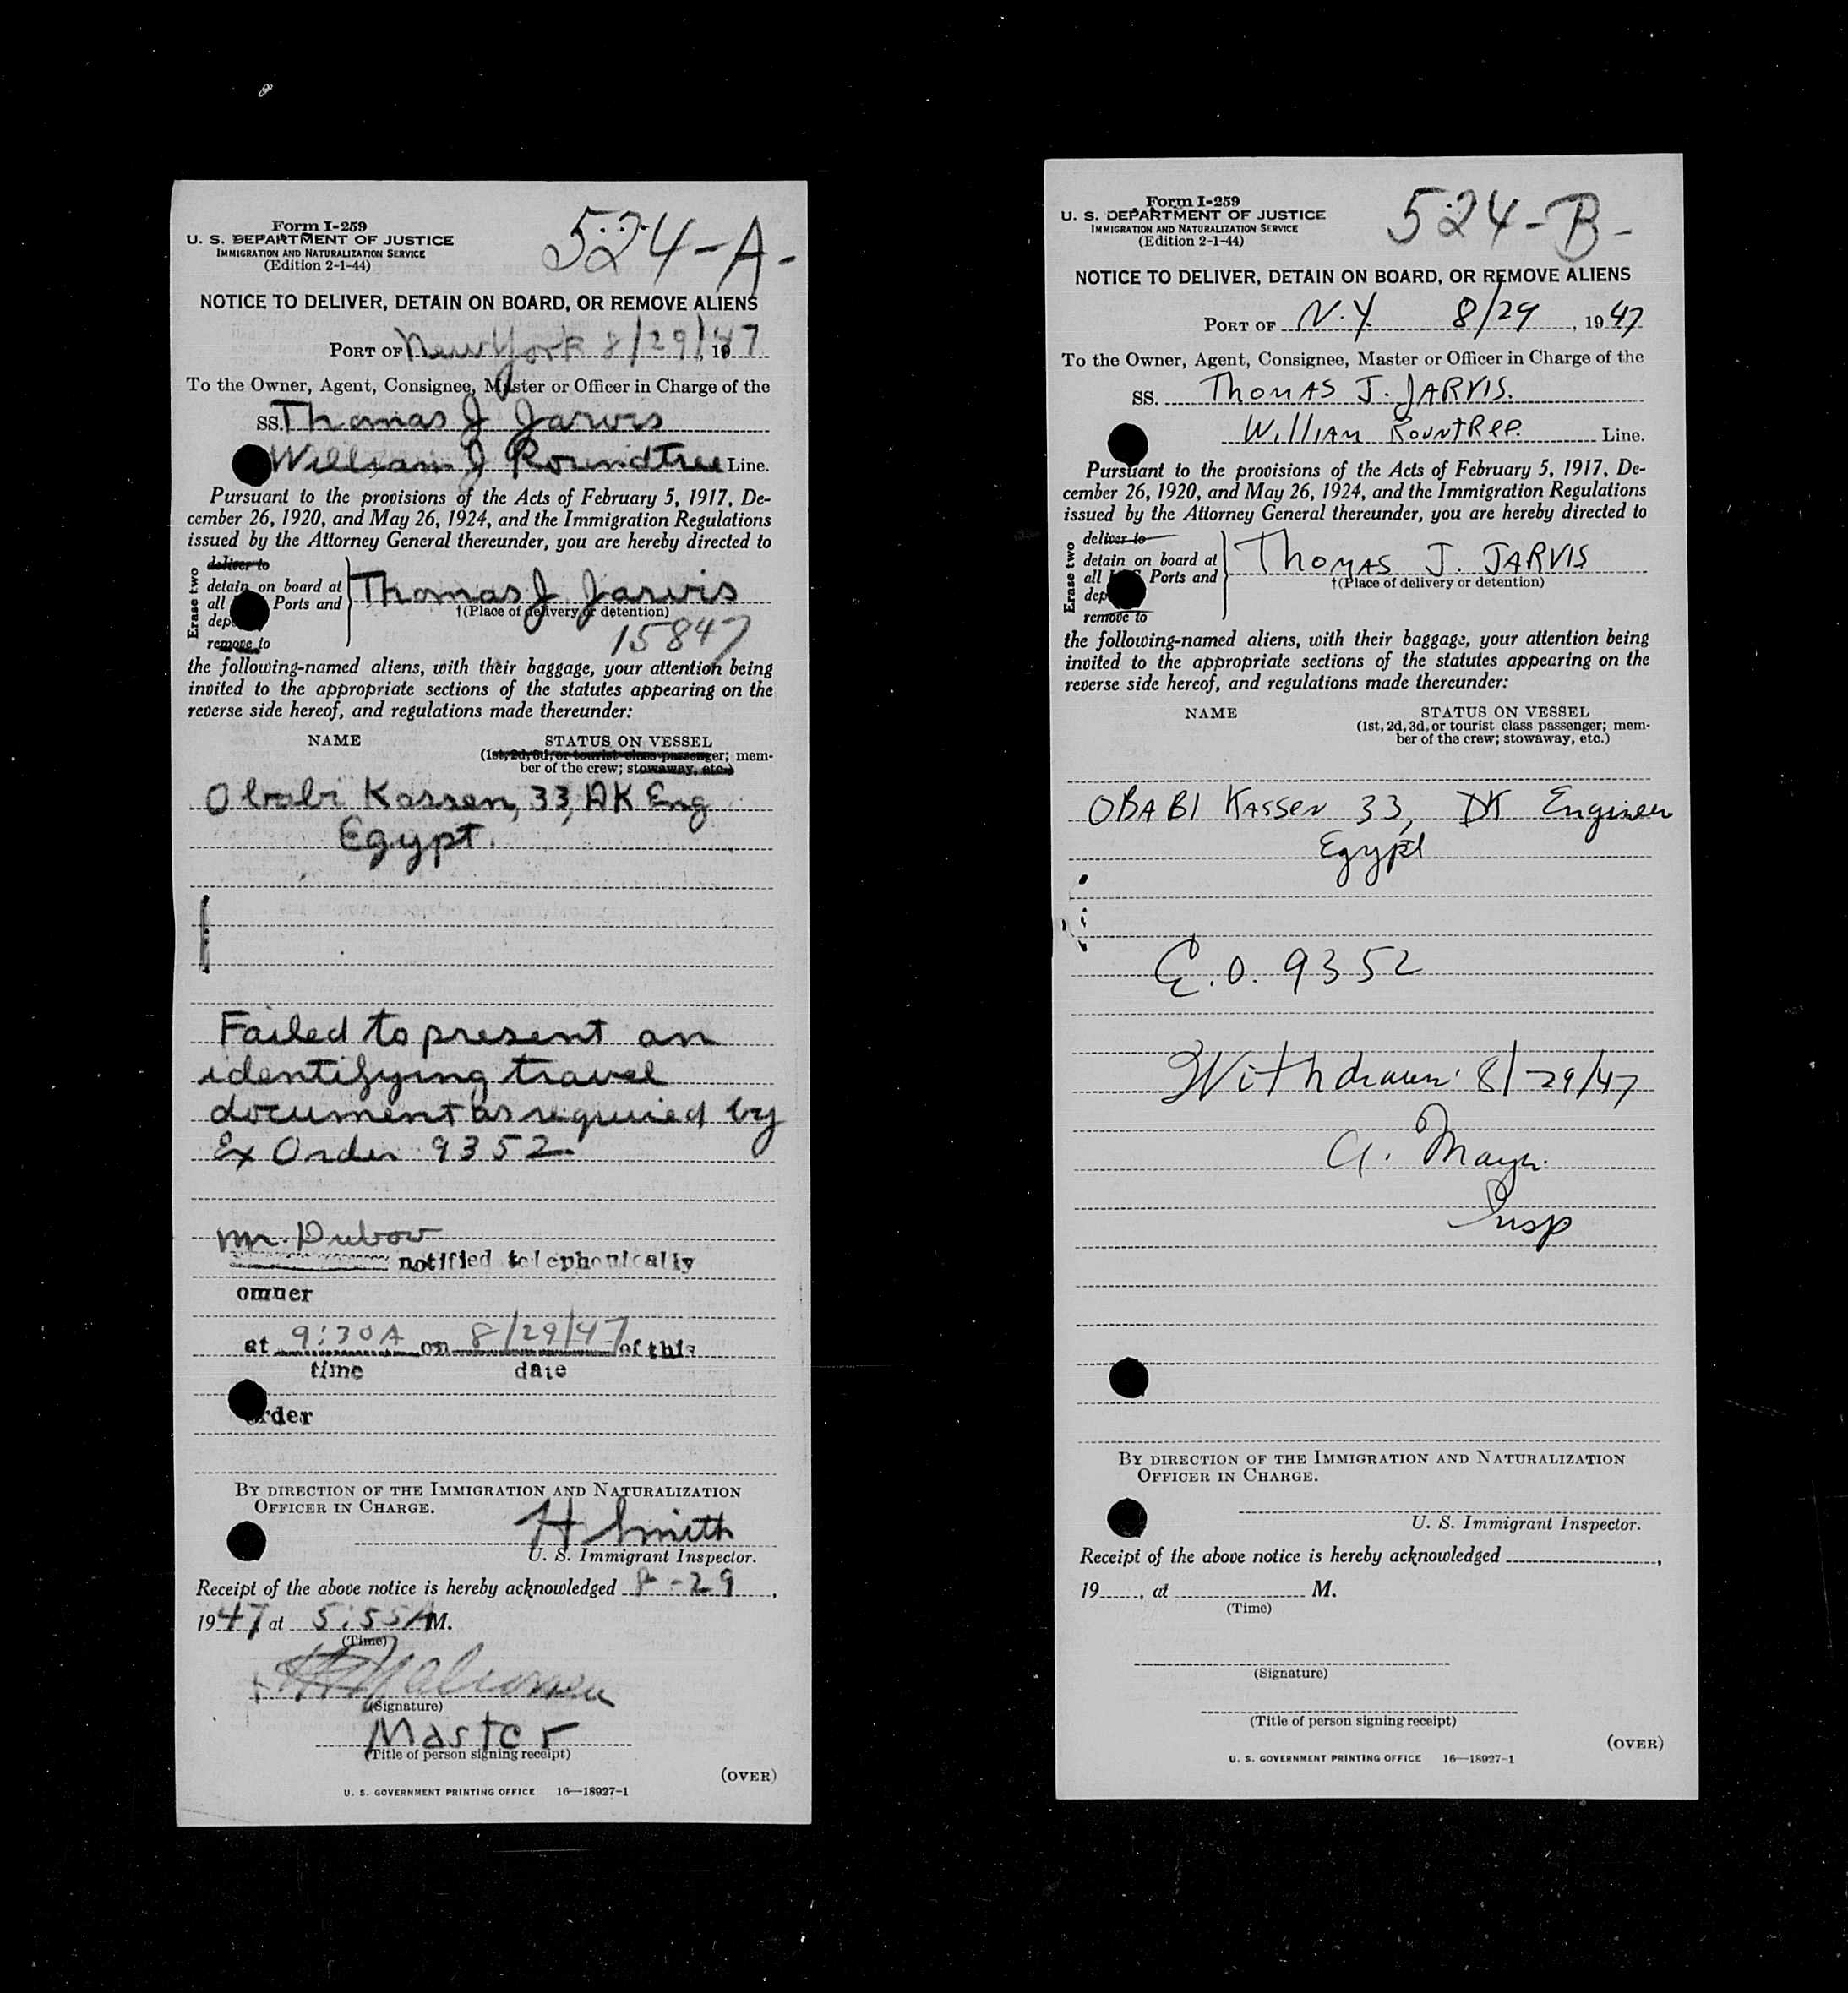 Form I-259
U. S. DEPARTMENT OF JUSTICE
IMMIGRATION AND NATURALIZATION SERVICE
(Edition 2-1-44)
524-A-
NOTICE TO DELIVER, DETAIN ON BOARD, OR REMOVE ALIENS
PORT OF New York 8/29/1947
To the Owner, Agent, Consignee, Master or Officer in Charge of the
SS. Thomas J Jarvis
William J Roundtree Line.
Pursuant to the provisions of the Acts of February 5, 1917, De-
cember 26, 1920, and May 26, 1924, and the Immigration Regulations
issued by the Attorney General thereunder, you are hereby directed to
Erase two
deliver to
detain on board at
all Ports and
dep
remove to
Thomas J Jarvis
†(Place of delivery or detention)
15847
the following-named aliens, with their baggage, your attention being
invited to the appropriate sections of the statutes appearing on the
reverse side hereof, and regulations made thereunder:
NAME STATUS ON VESSEL
(1st, 2d, 3d, or tourist class passenger; mem-
ber of the crew; stowaway, etc.)
Obabi Kassen, 33, DK Eng
Egypt.
Failed to present an
identifying travel
document as required by
Ex Order 9352
Mr. Dubow
notified telephonically
owner
at 9:30A on 8/29/47 of this
time date
order
BY DIRECTION OF THE IMMIGRATION AND NATURALIZATION
OFFICER IN CHARGE.
H Smith
U. S. Immigrant Inspector.
Receipt of the above notice is hereby acknowledged 8-29,
1947 at 5:55 AM.
(Time)
(Signature)
Master
(Title of person signing receipt)
(OVER)
U. S. GOVERNMENT PRINTING OFFICE 16—18927-1
Form I-259
U. S. DEPARTMENT OF JUSTICE
IMMIGRATION AND NATURALIZATION SERVICE
(Edition 2-1-44)
524-B-
NOTICE TO DELIVER, DETAIN ON BOARD, OR REMOVE ALIENS
PORT OF N.Y. 8/29, 1947
To the Owner, Agent, Consignee, Master or Officer in Charge of the
SS. THOMAS J. JARVIS.
WILLIAM ROUNTREE. Line.
Pursuant to the provisions of the Acts of February 5, 1917, De-
cember 26, 1920, and May 26, 1924, and the Immigration Regulations
issued by the Attorney General thereunder, you are hereby directed to
Erase two
deliver to
detain on board at
all Ports and
dep
remove to
THOMAS J. JARVIS
†(Place of delivery or detention)
the following-named aliens, with their baggage, your attention being
invited to the appropriate sections of the statutes appearing on the
reverse side hereof, and regulations made thereunder:
NAME STATUS ON VESSEL
(1st, 2d, 3d, or tourist class passenger; mem-
ber of the crew; stowaway, etc.)
OBABI KASSEN 33, DK Engineer
Egypt
E.O. 9352
Withdrawn 8/29/47
A. Mayer
Insp
BY DIRECTION OF THE IMMIGRATION AND NATURALIZATION
OFFICER IN CHARGE.
U. S. Immigrant Inspector.
Receipt of the above notice is hereby acknowledged,
19, at M.
(Time)
(Signature)
(Title of person signing receipt)
(OVER)
U. S. GOVERNMENT PRINTING OFFICE 16—18927-1